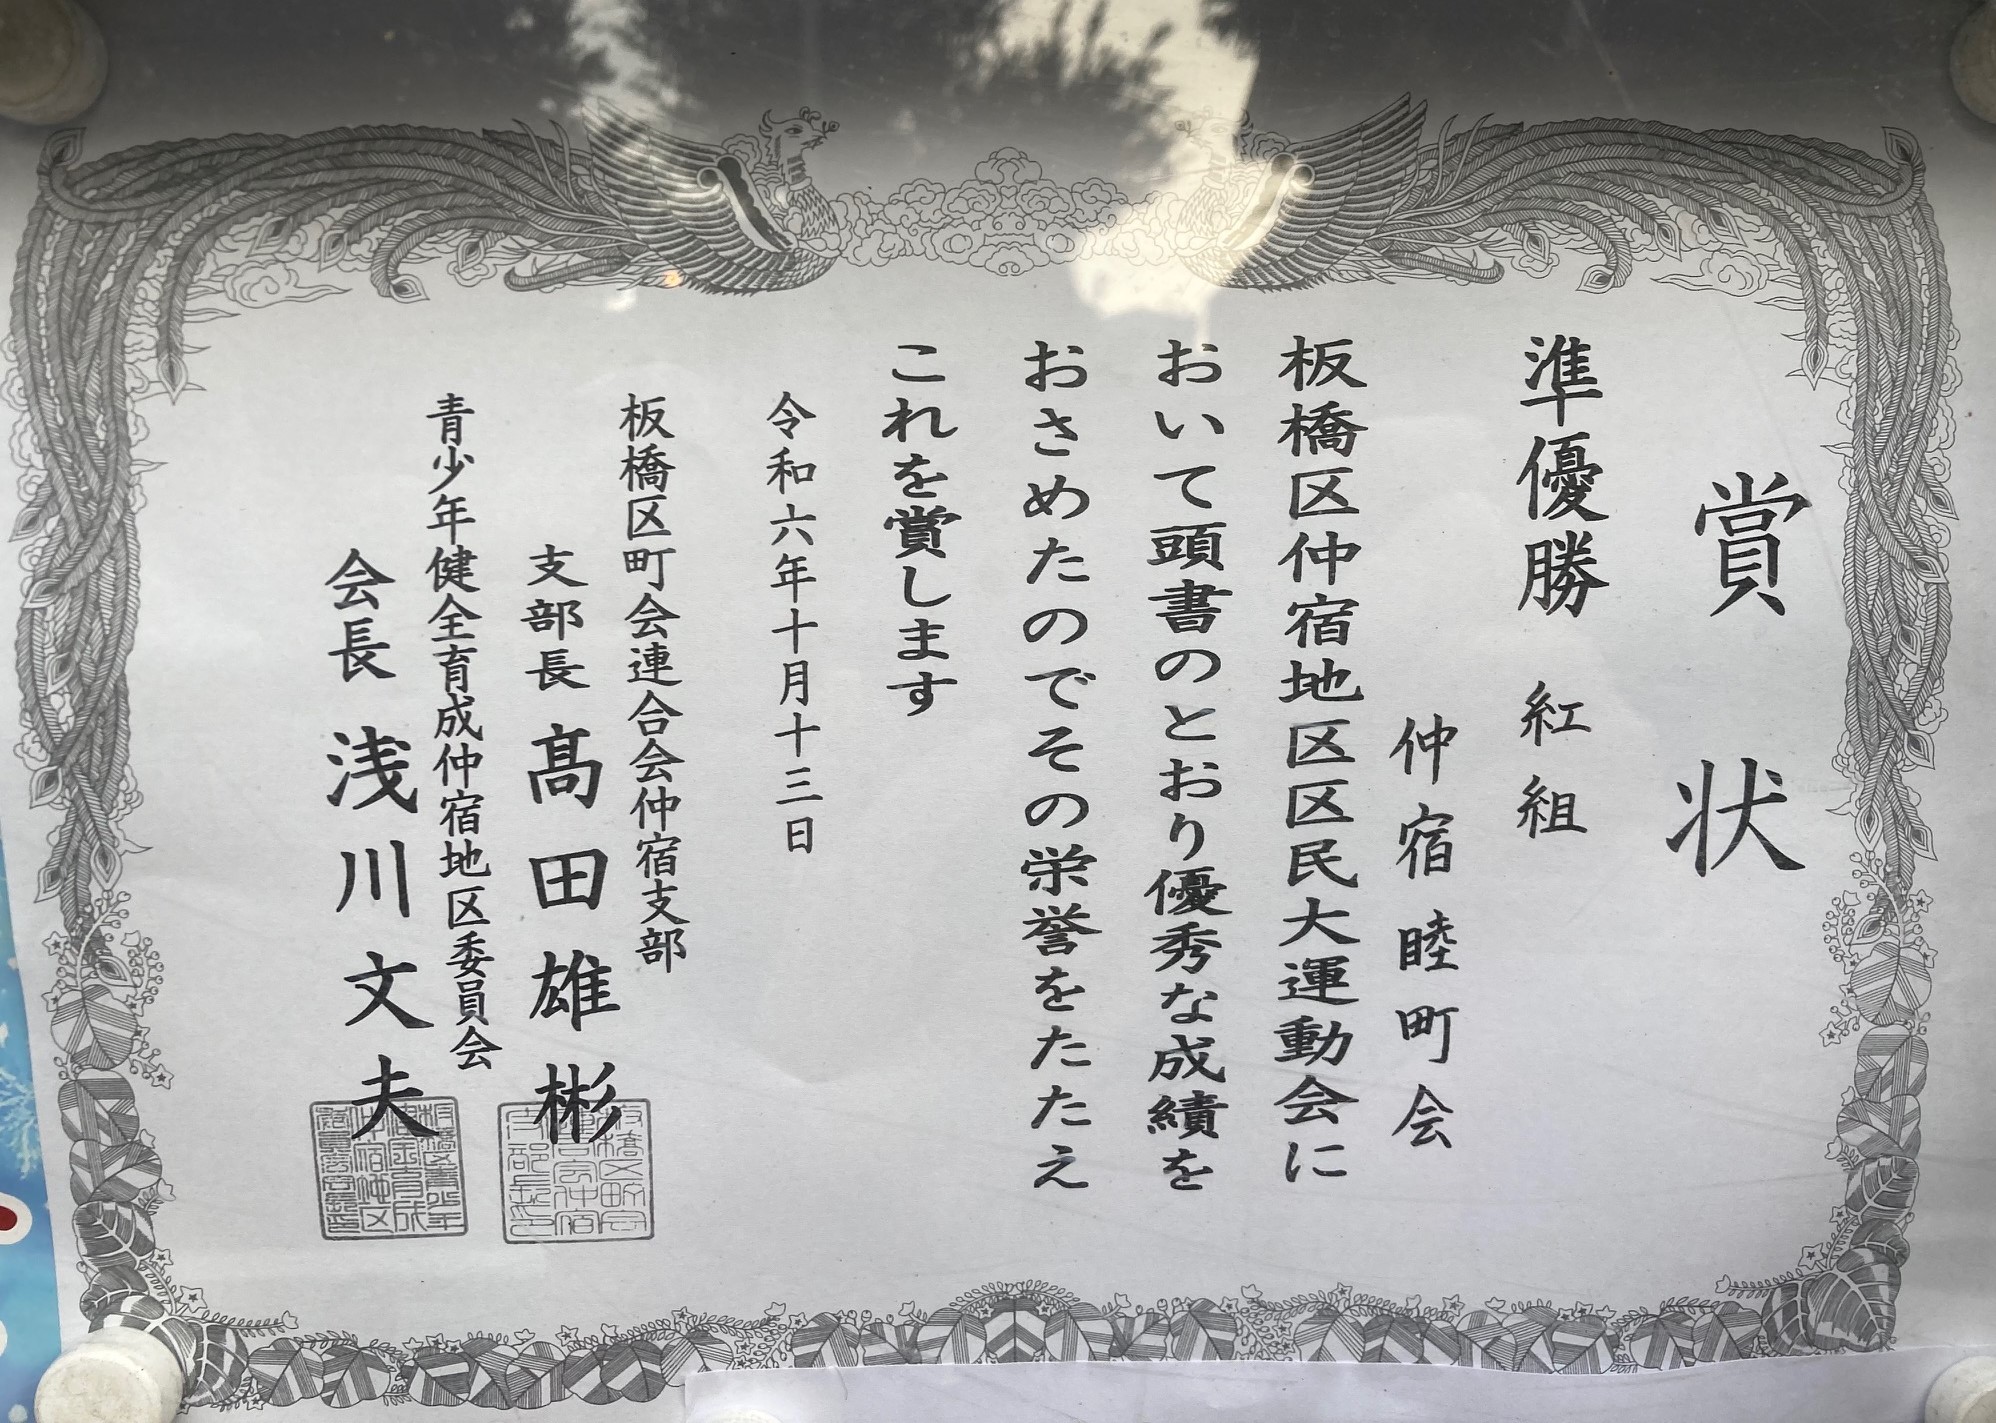 賞状
準優勝 紅組
仲宿睦町会
板橋区仲宿地区区民大運動会に
おいて頭書のとおり優秀な成績を
おさめたのでその栄誉をたたえ
これを賞します
令和六年十月十三日
板橋区町会連合会仲宿支部
支部長 髙田雄彬
青少年健全育成仲宿地区委員会
会長 浅川文夫